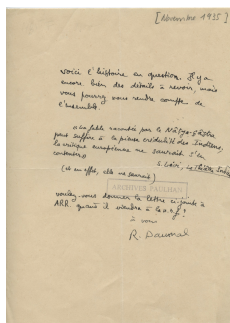 [Novembre 1935]
voici l'histoire en question. Il y a
encore bien des détails à revoir, mais
vous pourrez vous rendre compte de
l'ensemble.
"La fable racontée par le Nâṭya-çâstra
peut suffire à la pieuse crédulité des Indiens,
la critique européenne ne saurait s'en
contenter"
S. Lévi, Le théâtre Indien
(et en effet, elle ne saurait)
ARCHIVES PAULHAN
voulez-vous donner la lettre ci-jointe à
ARR. quand il viendra à la n.r.f.?
à vous
R. Daumal